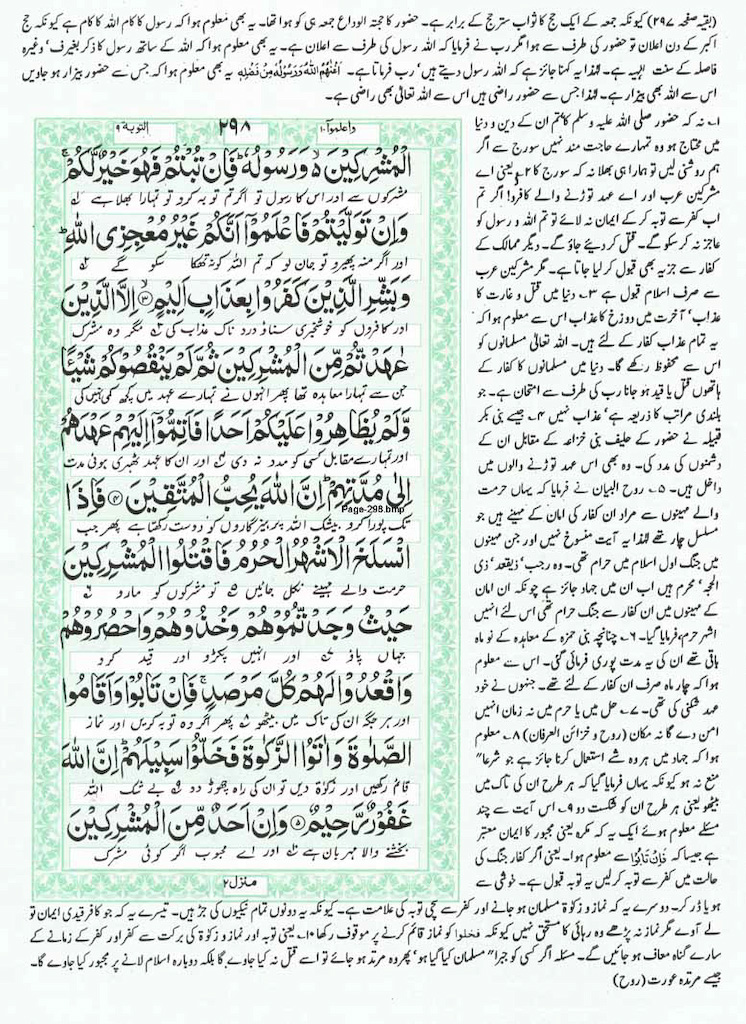 (بقیہ صفحہ ۲۹۷) کیونکہ جمعہ کے ایک حج کا ثواب ستر حج کے برابر ہے۔ حضور کا حجتہ الوداع جمعہ ہی کو ہوا تھا۔ یہ بھی معلوم ہوا کہ رسول کا کام اللہ کا کام ہے کیونکہ حج
اکبر کے دن اعلان تو حضور کی طرف سے ہوا مگر رب نے فرمایا کہ اللہ رسول کی طرف سے اعلان ہے۔ یہ بھی معلوم ہوا کہ اللہ کے ساتھ رسول کا ذکر بغیر 'ف' وغیرہ
فاصلہ کے سنت الہیہ ہے۔ لہذا یہ کہنا جائز ہے کہ اللہ رسول دیتے ہیں' رب فرماتا ہے۔ اَغْنٰهُمُ اللّٰهُ وَرَسُوْلُهٗ مِنْ فَضْلِهٖ یہ بھی معلوم ہوا کہ جس سے حضور بیزار ہو جاویں
اس سے اللہ بھی بیزار ہے۔ لہذا جس سے حضور راضی ہیں اس سے اللہ تعالٰی بھی راضی ہے۔
واعلموا ۱۰ ۲۹۸ التوبة ۹
الْمُشْرِكِيْنَ ۙ۬ وَرَسُوْلُهٗ ؕ فَاِنْ تُبْتُمْ فَهُوَ خَيْرٌ لَّكُمْ ۚ
مشرکوں سے اور اس کا رسول تو اگر تم توبہ کرو تو تمہارا بھلا ہے
وَاِنْ تَوَلَّيْتُمْ فَاعْلَمُوْۤا اَنَّكُمْ غَيْرُ مُعْجِزِى اللّٰهِ ؕ
اور اگر منہ پھیرو تو جان لو کہ تم اللہ کو نہ تھکا سکو گے
وَبَشِّرِ الَّذِيْنَ كَفَرُوْا بِعَذَابٍ اَلِيْمٍ ۙ‏﴿۳﴾ اِلَّا الَّذِيْنَ
اور کافروں کو خوشخبری سناؤ درد ناک عذاب کی مگر وہ مشرک
عٰهَدْتُّمْ مِّنَ الْمُشْرِكِيْنَ ثُمَّ لَمْ يَنْقُصُوْكُمْ شَيْـًٔـا
جن سے تمہارا معاہدہ تھا پھر انہوں نے تمہارے عہد میں کچھ کمی نہیں کی
وَّلَمْ يُظَاهِرُوْا عَلَيْكُمْ اَحَدًا فَاَتِمُّوْۤا اِلَيْهِمْ عَهْدَهُمْ
اور تمہارے مقابل کسی کو مدد نہ دی تو ان کا عہد ٹھہری ہوئی مدت
اِلٰى مُدَّتِهِمْ ؕ اِنَّ اللّٰهَ يُحِبُّ الْمُتَّقِيْنَ ‏﴿۴﴾ فَاِذَا
Page-298.bmp
تک پورا کرو بیشک اللہ پرہیزگاروں کو دوست رکھتا ہے پھر جب
انْسَلَخَ الْاَشْهُرُ الْحُرُمُ فَاقْتُلُوا الْمُشْرِكِيْنَ
حرمت والے مہینے نکل جائیں تو مشرکوں کو مارو
حَيْثُ وَجَدْتُّمُوْهُمْ وَخُذُوْهُمْ وَاحْصُرُوْهُمْ
جہاں پاؤ اور انہیں پکڑو اور قید کرو
وَاقْعُدُوْا لَهُمْ كُلَّ مَرْصَدٍ ۚ فَاِنْ تَابُوْا وَاَقَامُوا
اور ہر جگہ ان کی تاک میں بیٹھو پھر اگر وہ توبہ کریں اور نماز
الصَّلٰوةَ وَاٰتَوُا الزَّكٰوةَ فَخَلُّوْا سَبِيْلَهُمْ ؕ اِنَّ اللّٰهَ
قائم رکھیں اور زکوٰۃ دیں تو ان کی راہ چھوڑ دو بے شک اللہ
غَفُوْرٌ رَّحِيْمٌ ‏﴿۵﴾ وَاِنْ اَحَدٌ مِّنَ الْمُشْرِكِيْنَ
بخشنے والا مہربان ہے اور اے محبوب اگر کوئی مشرک
منزل ۲
۱۔ نہ کہ حضور صلی اللہ علیہ وسلم کا' تم ان کے دین و دنیا
میں محتاج ہو وہ تمہارے حاجت مند نہیں سورج سے اگر
ہم روشنی لیں تو ہمارا ہی بھلا نہ کہ سورج کا ۲۔ یعنی اے
مشرکین عرب اور اے عہد توڑنے والے کافرو! اگر تم
اب کفر سے توبہ کر کے ایمان نہ لائے تو تم اللہ و رسول کو
عاجز نہ کر سکو گے۔ قتل کر دیئے جاؤ گے۔ دیگر ممالک کے
کفار سے جزیہ بھی قبول کر لیا جاتا ہے۔ مگر مشرکین عرب
سے صرف اسلام قبول ہے ۳۔ دنیا میں قتل و غارت کا
عذاب' آخرت میں دوزخ کا عذاب اس سے معلوم ہوا کہ
یہ تمام عذاب کفار کے لئے ہیں۔ اللہ تعالٰی مسلمانوں کو
اس سے محفوظ رکھے گا۔ دنیا میں مسلمانوں کا کفار کے
ہاتھوں قتل یا قید ہو جانا رب کی طرف سے امتحان ہے۔ جو
بلندی مراتب کا ذریعہ ہے' عذاب نہیں ۴۔ جیسے بنی بکر
قبیلہ نے حضور کے حلیف بنی خزاعہ کے مقابل ان کے
دشمنوں کی مدد کی۔ وہ بھی اس عہد توڑنے والوں میں
داخل ہیں۔ ۵۔ روح البیان نے فرمایا کہ یہاں حرمت
والے مہینوں سے مراد ان کفار کی امان کے مہینے ہیں جو
مسلسل چار تھے لہذا یہ آیت منسوخ نہیں اور جن مہینوں
میں جنگ اول اسلام میں حرام تھی۔ وہ رجب' ذیقعد' ذی
الحجہ' محرم ہیں اب ان میں جہاد جائز ہے چونکہ ان امان
کے مہینوں میں ان کفار سے جنگ حرام تھی اس لئے انہیں
اشہر حرم' فرمایا گیا۔ ۶۔ چنانچہ بنی حمزہ کے معاہدہ کے نو ماہ
باقی تھے ان کی یہ مدت پوری فرمائی گئی۔ اس سے معلوم
ہوا کہ چار ماہ صرف ان کفار کے لئے تھے۔ جنہوں نے خود
عہد شکنی کی تھی۔ ۷۔ حل میں یا حرم میں نہ زمان انہیں
امن دے گا نہ مکان (روح و خزائن العرفان) ۸۔ معلوم
ہوا کہ جہاد میں ہر وہ شے استعمال کرنا جائز ہے جو شرعا"
منع نہ ہو کیونکہ یہاں فرمایا گیا کہ ہر طرح ان کی تاک میں
بیٹھو یعنی ہر طرح ان کو شکست دو ۹۔ اس آیت سے چند
مسئلے معلوم ہوئے ایک یہ کہ مکرہ یعنی مجبور کا ایمان معتبر
ہے جیسا کہ فَاِنْ تَابُوْا سے معلوم ہوا۔ یعنی اگر کفار جنگ کی
حالت میں کفر سے توبہ کر لیں یہ توبہ قبول ہے۔ خوشی سے
ہو یا ڈر کر۔ دوسرے یہ کہ نماز و زکوٰۃ مسلمان ہو جانے اور کفر سے سچی توبہ کی علامت ہے۔ کیونکہ یہ دونوں تمام نیکیوں کی جڑ ہیں۔ تیسرے یہ کہ جو کافر قیدی ایمان تو
لے آوے مگر نماز نہ پڑھے وہ رہائی کا مستحق نہیں کیونکہ فَخَلُّوْا کو نماز قائم کرنے پر موقوف رکھا ۱۰۔ یعنی توبہ اور نماز و زکوٰۃ کی برکت سے کفر اور کفر کے زمانے کے
سارے گناہ معاف ہو جائیں گے۔ مسئلہ اگر کسی کو جبرا" مسلمان کیا گیا ہو' پھر وہ مرتد ہو جائے تو اسے قتل نہ کیا جاوے گا بلکہ دوبارہ اسلام لانے پر مجبور کیا جاوے گا۔
جیسے مرتدہ عورت (روح)